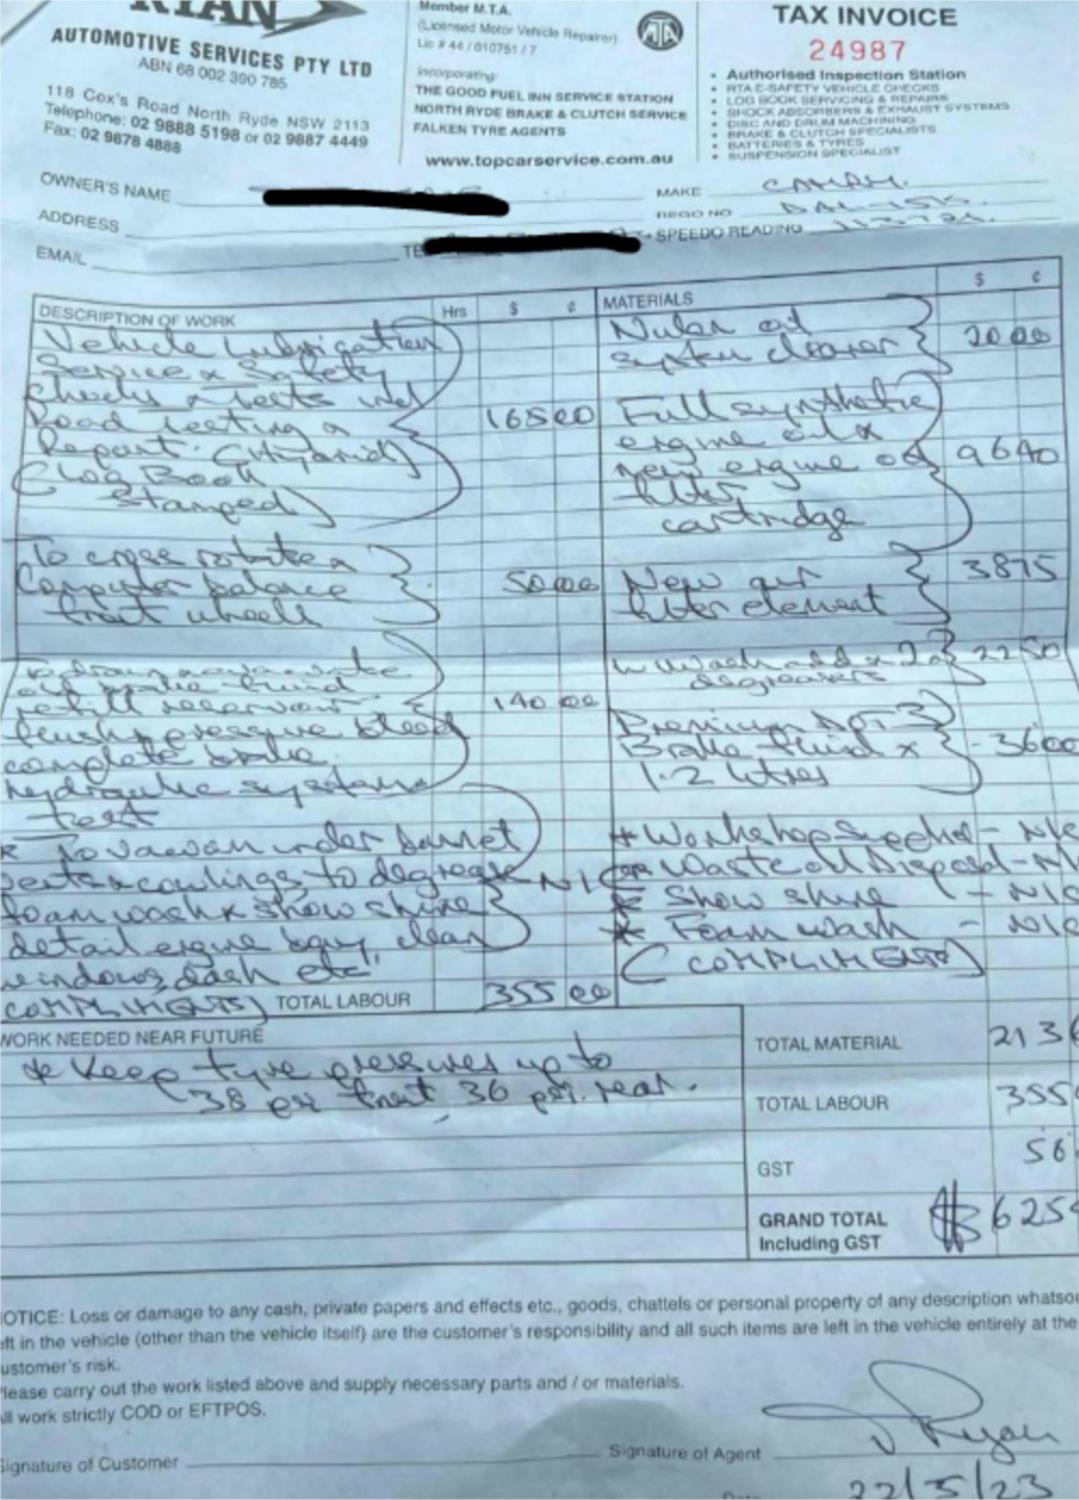 RYAN
AUTOMOTIVE SERVICES PTY LTD
ABN 68 002 390 785
118 Cox's Road North Ryde NSW 2113
Telephone: 02 9888 5198 or 02 9887 4449
Fax: 02 9878 4888
Member M.T.A.
(Licensed Motor Vehicle Repairer)
Lic # 44 / 010751 / 7
MTA
Incorporating:
THE GOOD FUEL INN SERVICE STATION
NORTH RYDE BRAKE & CLUTCH SERVICE
FALKEN TYRE AGENTS
www.topcarservice.com.au
TAX INVOICE
24987
• Authorised Inspection Station
• RTA E-SAFETY VEHICLE CHECKS
• LOG BOOK SERVICING & REPAIRS
• SHOCK ABSORBERS & EXHAUST SYSTEMS
• DISC AND DRUM MACHINING
• BRAKE & CLUTCH SPECIALISTS
• BATTERIES & TYRES
• SUSPENSION SPECIALIST
OWNER'S NAME
ADDRESS
EMAIL
TE
MAKE CAMRY.
REGO NO
SPEEDO READING
DESCRIPTION OF WORK Hrs $ ¢
Vehicle Lubrication
Service & Safety
checks & tests incl
Road testing & 165 00
Report. (Hybrid)
(Log Book
Stamped)
To cross rotate &
Computer balance 50 00
front wheels
old brake fluid
refill reservoir 140 00
flush & pressure bleed
complete brake
hydraulic systems
test
* To vacuum under bonnet
vents & cowlings to degrease N/C
foam wash & show shine
detail engine bay, clean
windows, dash etc
COMPLIMENTS) TOTAL LABOUR 355 00
MATERIALS $ ¢
Nulon oil
system cleaner 20 00
Full synthetic
engine oil &
new engine oil 96 40
filter
cartridge
New air 38 75
filter element
W Wash add x 2 & 22 50
degreasers
Premium DOT 3
Brake fluid x 36 00
1.2 litres
* Workshop - N/C
* Waste oil Disposal - N
* Show shine - N/C
* Foam wash - N/C
(COMPLIMENTS)
WORK NEEDED NEAR FUTURE
* Keep tyre pressures up to
38 front, 36 psi. rear.
TOTAL MATERIAL 213
TOTAL LABOUR 355
GST 56
GRAND TOTAL $ 625
Including GST
NOTICE: Loss or damage to any cash, private papers and effects etc., goods, chattels or personal property of any description whatsoe
eft in the vehicle (other than the vehicle itself) are the customer's responsibility and all such items are left in the vehicle entirely at the
ustomer's risk.
Please carry out the work listed above and supply necessary parts and / or materials.
All work strictly COD or EFTPOS.
Signature of Customer
Signature of Agent Ryan
22/5/23